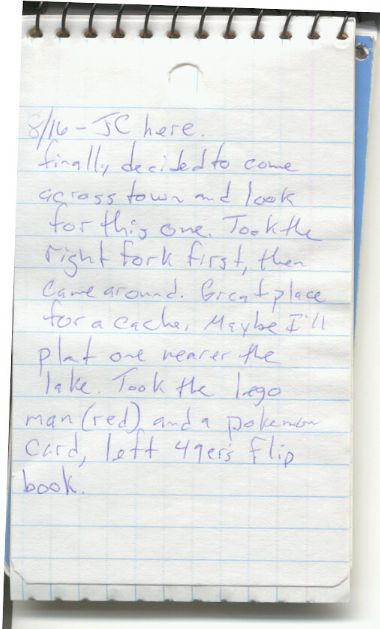 8/16 - JC here.
finally decided to come
across town and look
for this one. Took the
right fork first, then
came around. Great place
for a cache. Maybe I'll
plat one nearer the
lake. Took the lego
man (red) and a pokemon
card, left 49ers flip
book.